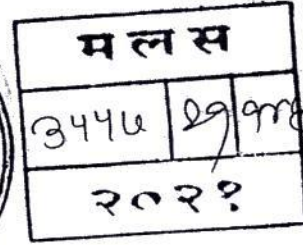 म ल स
३५५७ २१
२०२१